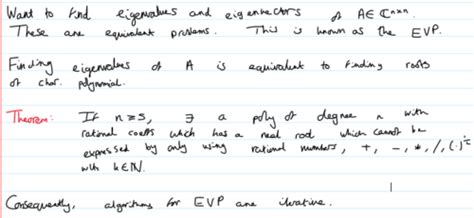 Want to find eigenvalues and eigenvectors of A ∈ ℂⁿˣⁿ.
These are equivalent problems. This is known as the EVP.
Finding eigenvalues of A is equivalent to finding roots
of char. polynomial.
Theorem: If n ≥ 5, ∃ a poly of degree n with
rational coeffs which has a real root which cannot be
expressed by only using rational numbers, +, -, *, /, (.)^{1/k}
with k∈ℕ.
Consequently, algorithms for EVP are iterative.